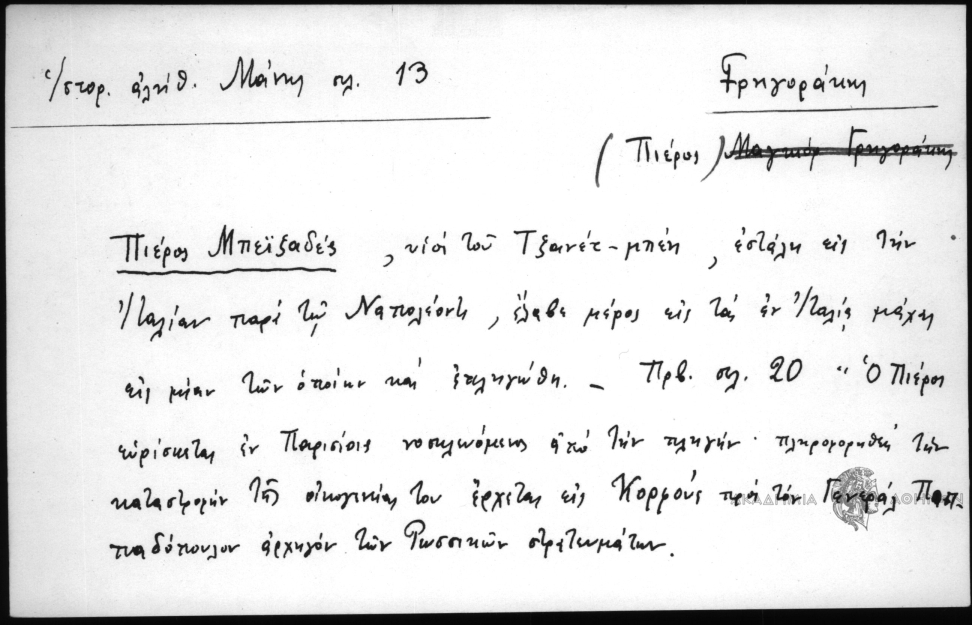 Ἱστορ. ἀλήθ. Μάνης σλ. 13
Γρηγοράκης
(Πιέρος) Μαγκιόρ Γρηγοράκης
Πιέρος Μπεϊζαδές, υἱός τοῦ Τζανέτ-μπέη, ἐστάλη εἰς τήν
Ἰταλίαν παρά τῷ Ναπολέοντι, ἔλαβε μέρος εἰς τάς ἐν Ἰταλίᾳ μάχας
εἰς μίαν τῶν ὁποίων καί ἐπληγώθη. – Πρβ. σλ. 20 "Ὁ Πιέρος
εὑρίσκεται ἐν Παρισίοις νοσηλευόμενος ἀπό τήν πληγήν· πληροφορηθείς τήν
καταστροφήν τῆς οἰκογενείας του ἔρχεται εἰς Κορφούς πρός τόν Γενεράλ Παπ-
παδόπουλον ἀρχηγόν τῶν Ρωσσικῶν στρατευμάτων.
ΑΚΑΔΗΜΙΑ ΑΘΗΝΩΝ